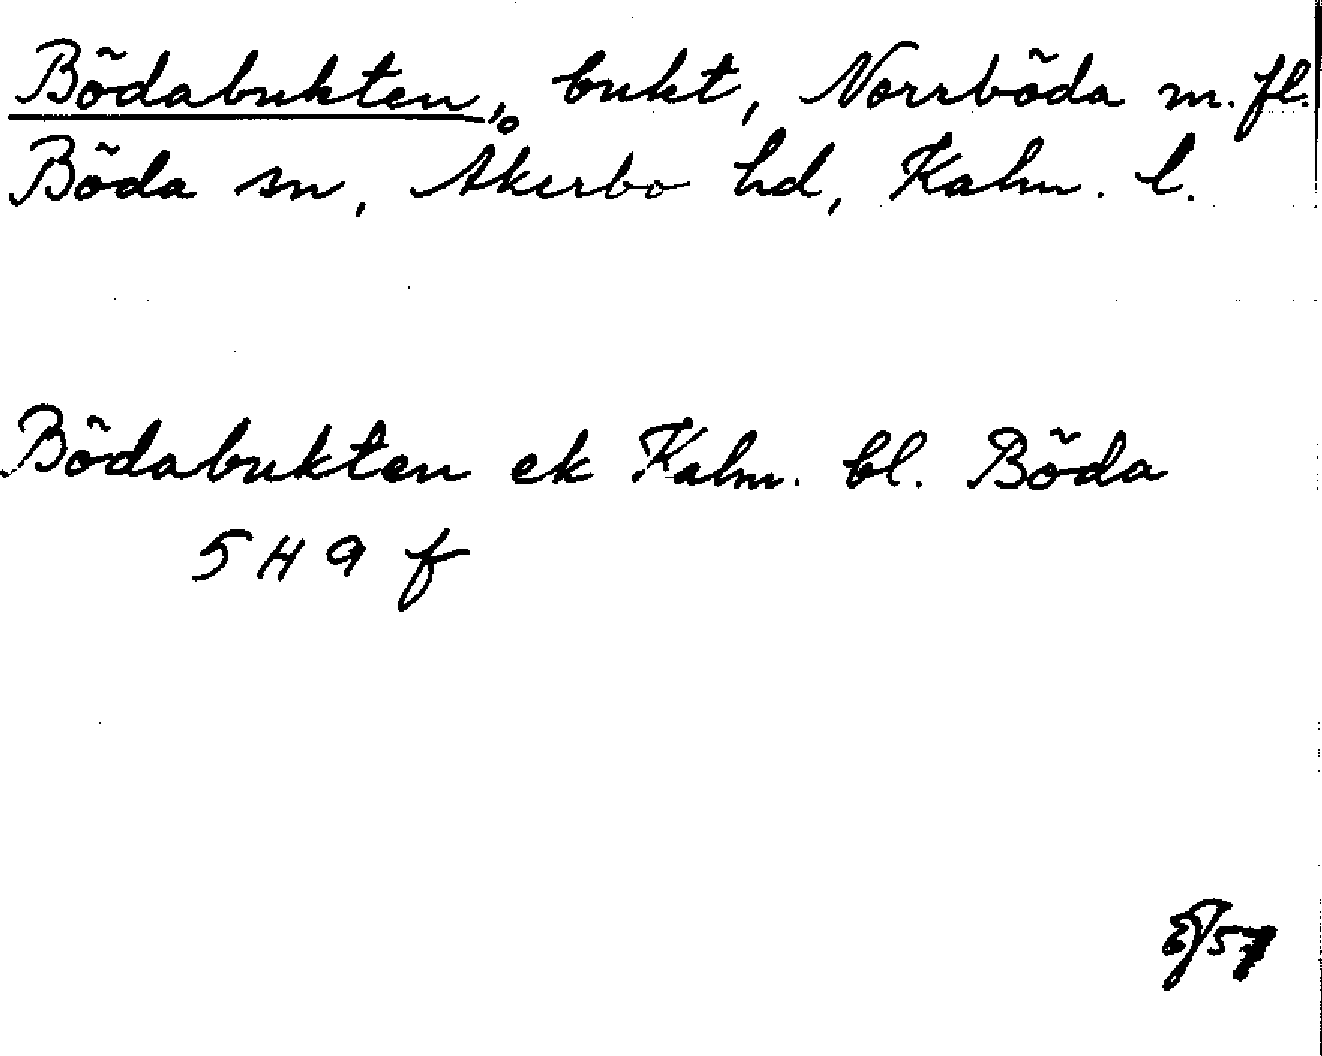 Bödabukten, bukt, Norrböda m. fl.
Böda sn, Åkerbo hd, Kalm. l.
Bödabukten ek Kalm. bl. Böda
5 H 9 f